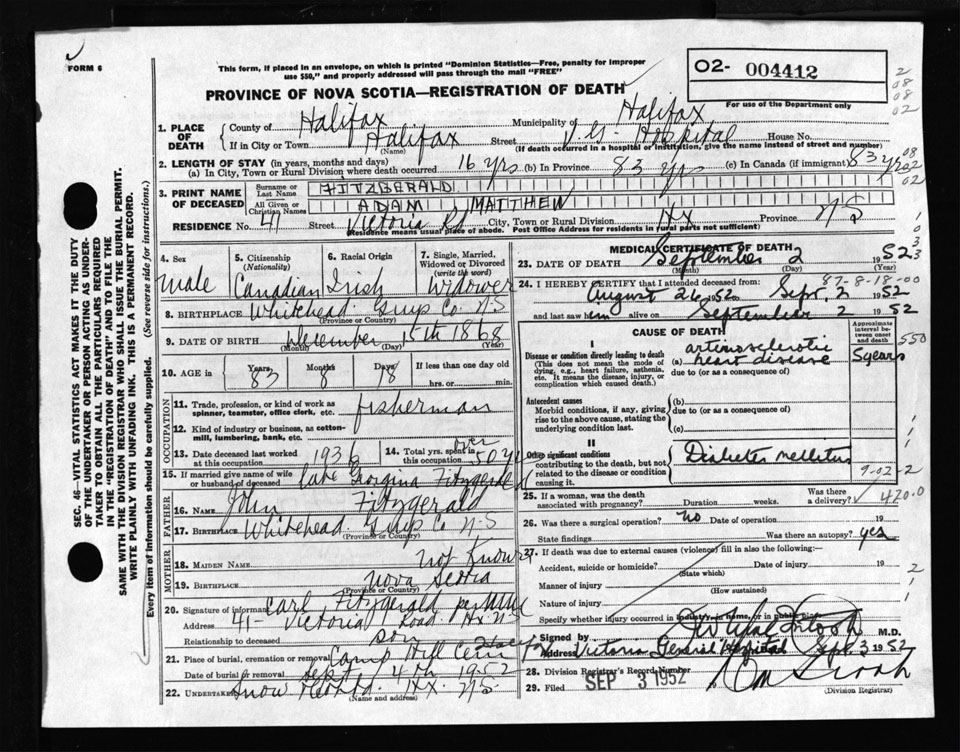 FORM 6
This form, if placed in an envelope, on which is printed "Dominion Statistics—Free, penalty for improper
use $50," and properly addressed will pass through the mail "FREE"
PROVINCE OF NOVA SCOTIA—REGISTRATION OF DEATH
02- 004412
For use of the Department only
1. PLACE OF DEATH
County of Halifax Municipality of Halifax
If in City or Town Halifax Street V.G. Hospital House No.
(Name) (If death occurred in a hospital or institution, give the name instead of street and number)
2. LENGTH OF STAY (in years, months and days)
(a) In City, Town or Rural Division where death occurred 16 yrs (b) In Province 83 yrs (c) In Canada (if immigrant) 83 yrs
3. PRINT NAME OF DECEASED
Surname or Last Name FITZGERALD
All Given or Christian Names ADAM MATTHEW
RESIDENCE No. 41 Street Victoria Rd City, Town or Rural Division Hx Province N S
(Residence means usual place of abode. Post Office Address for residents in rural parts not sufficient)
4. Sex
male
5. Citizenship (Nationality)
Canadian
6. Racial Origin
Irish
7. Single, Married, Widowed or Divorced (write the word)
Widower
8. BIRTHPLACE Whitehead Guys Co N-S
(Province or Country)
9. DATE OF BIRTH December 15th 1868
(Month) (Day) (Year)
10. AGE in Years 83 Months 8 Days 18 If less than one day old
hrs. or min.
OCCUPATION
11. Trade, profession, or kind of work as spinner, teamster, office clerk, etc. fisherman
12. Kind of industry or business, as cotton-mill, lumbering, bank, etc.
13. Date deceased last worked at this occupation 1936
14. Total yrs. spent in this occupation over 50 yrs
15. If married give name of wife or husband of deceased Late Georgina Fitzgerald
FATHER
16. Name John Fitzgerald
17. Birthplace Whitehead Guys Co N-S
(Province or Country)
MOTHER
18. MAIDEN NAME Not Known
19. BIRTHPLACE Nova Scotia
(Province or Country)
20. Signature of informant Carl Fitzgerald per
Address 41- Victoria Road Hx N S
Relationship to deceased son
21. Place of burial, cremation or removal Camp Hill Cem Halifax
Date of burial or removal Sept 4th 1952
22. Undertaker Snow Hx. N.S.
(Name and address)
MEDICAL CERTIFICATE OF DEATH
23. DATE OF DEATH September 2 1952
(Month) (Day) (Year)
24. I HEREBY CERTIFY that I attended deceased from: 87-8-18-00
August 26 1952 Sept. 2 1952
and last saw him alive on September 2 1952
CAUSE OF DEATH
Approximate interval between onset and death
I
Disease or condition directly leading to death
(This does not mean the mode of dying, e.g., heart failure, asthenia, etc. It means the disease, injury, or complication which caused death.)
(a) arteriosclerotic heart disease 5 years
due to (or as a consequence of)
Antecedent causes
Morbid conditions, if any, giving rise to the above cause, stating the underlying condition last.
(b)
due to (or as a consequence of)
(c)
II
Other significant conditions contributing to the death, but not related to the disease or condition causing it.
Diabetes mellitus
9-02-2
25. If a woman, was the death associated with pregnancy? Duration weeks. Was there a delivery? 420.0
26. Was there a surgical operation? No Date of operation 19
State findings Was there an autopsy? yes
27. If death was due to external causes (violence) fill in also the following:—
Accident, suicide or homicide? Date of injury 19
(State which)
Manner of injury
(How sustained)
Nature of injury
Specify whether injury occurred in industry, in home, or in public place
Signed by M.D.
Address Victoria General Hospital Sept 3 1952
28. Division Registrar's Record Number
29. Filed SEP 3 1952
(Division Registrar)
SEC. 46—VITAL STATISTICS ACT MAKES IT THE DUTY
OF THE UNDERTAKER OR PERSON ACTING AS UNDER-
TAKER TO OBTAIN ALL THE PARTICULARS REQUIRED
IN THE "REGISTRATION OF DEATH" AND TO FILE THE
SAME WITH THE DIVISION REGISTRAR WHO SHALL ISSUE THE BURIAL PERMIT.
WRITE PLAINLY WITH UNFADING INK. THIS IS A PERMANENT RECORD.
Every item of information should be carefully supplied. (See reverse side for instructions.)